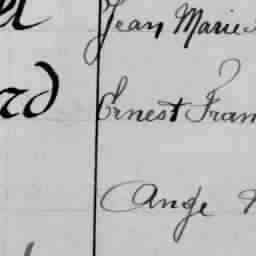 Jean Marie
rd Ernest Fran
Ange